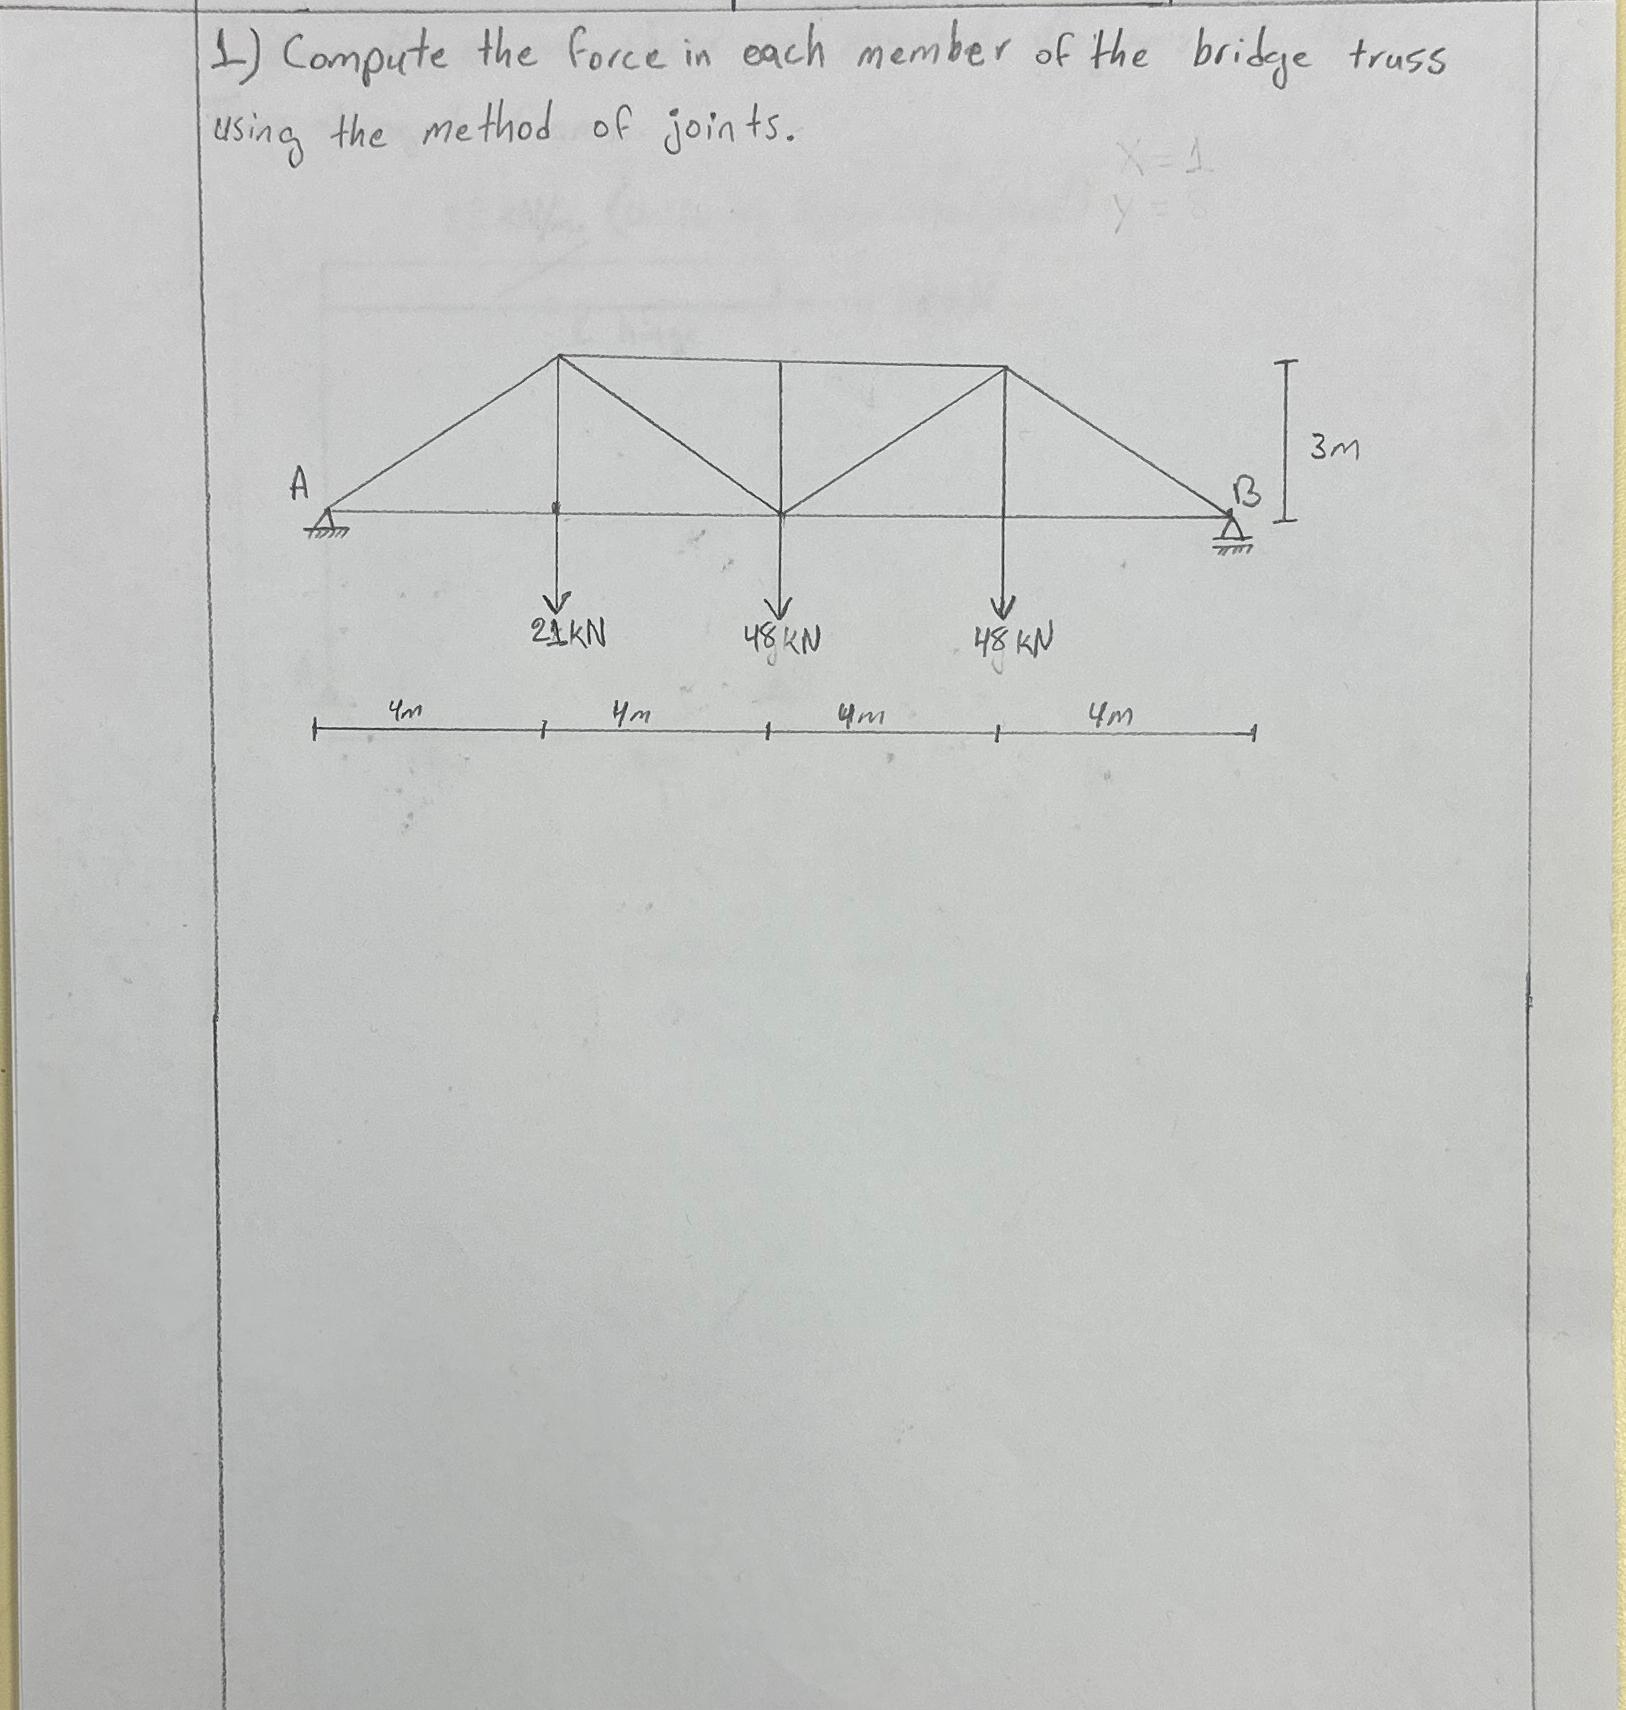 1) Compute the force in each member of the bridge truss
using the method of joints.
X = 1
y = 8
A
B
3m
21kN
48kN
48kN
4m
4m
4m
4m